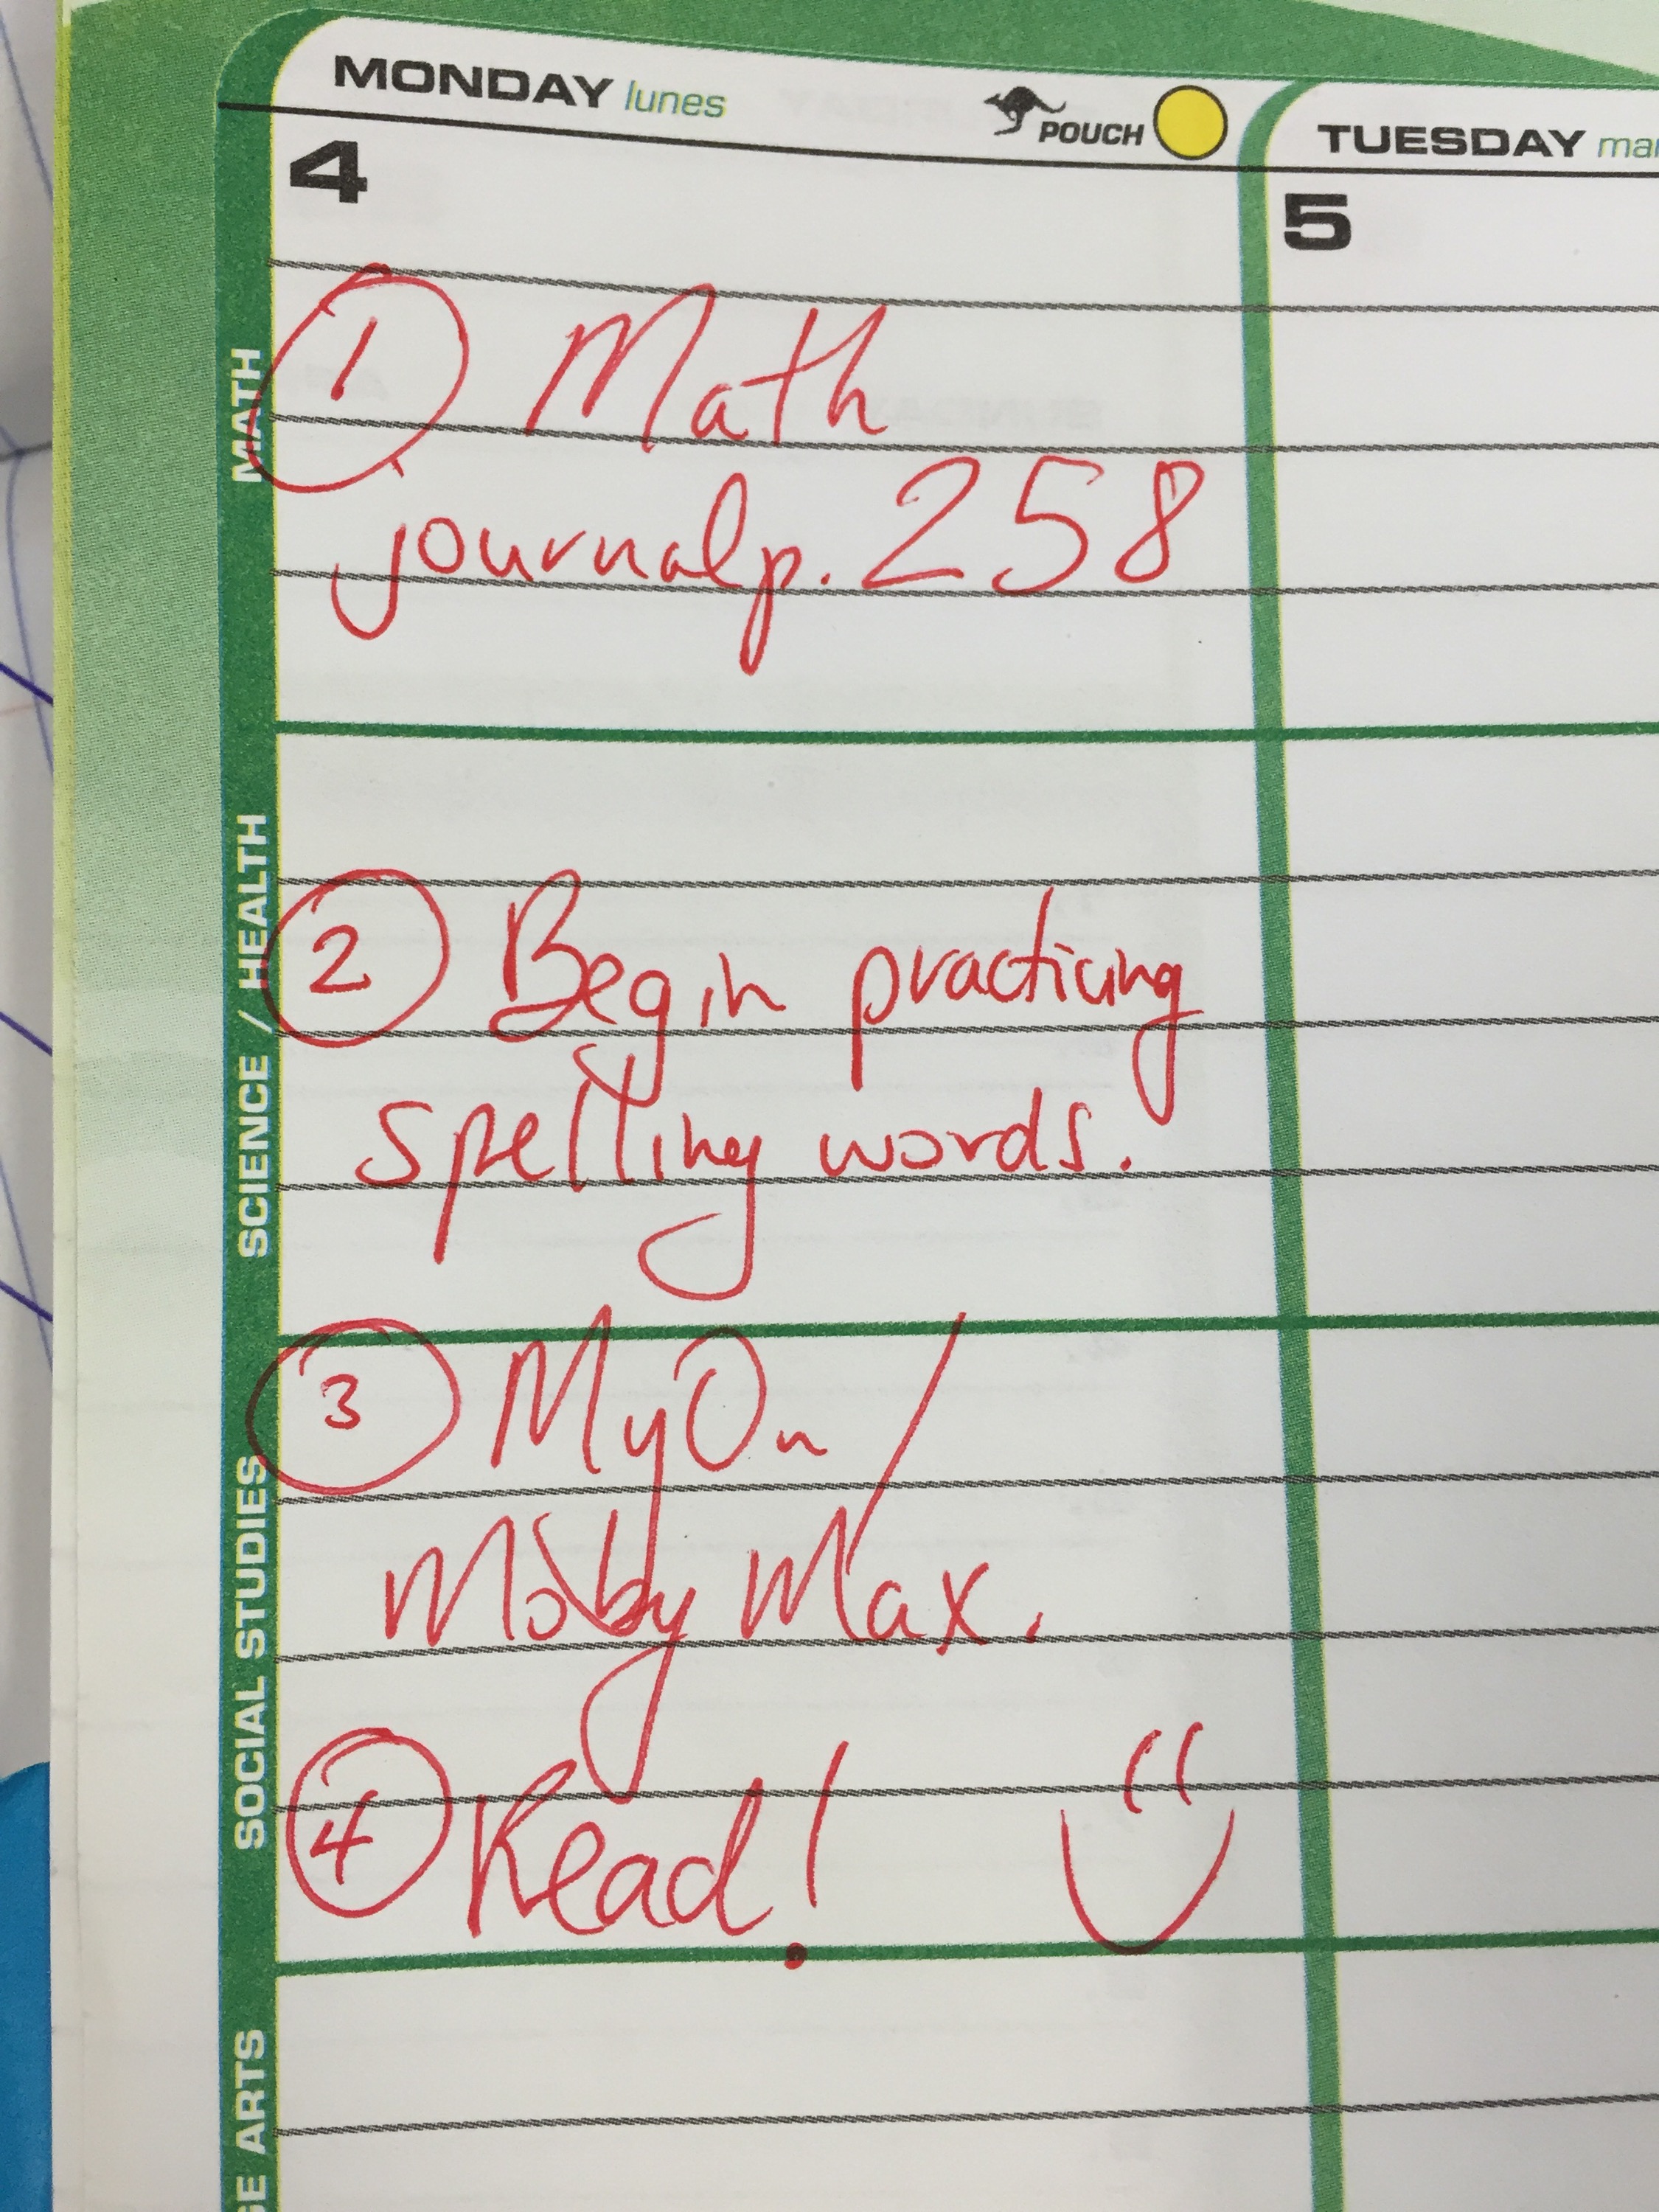 MONDAY lunes POUCH
TUESDAY
4
5
MATH
1 Math
journal p. 258
SCIENCE / HEALTH
2 Begin practicing
spelling words.
SOCIAL STUDIES
3 MyOn/
Moby Max.
4 Read!
ARTS